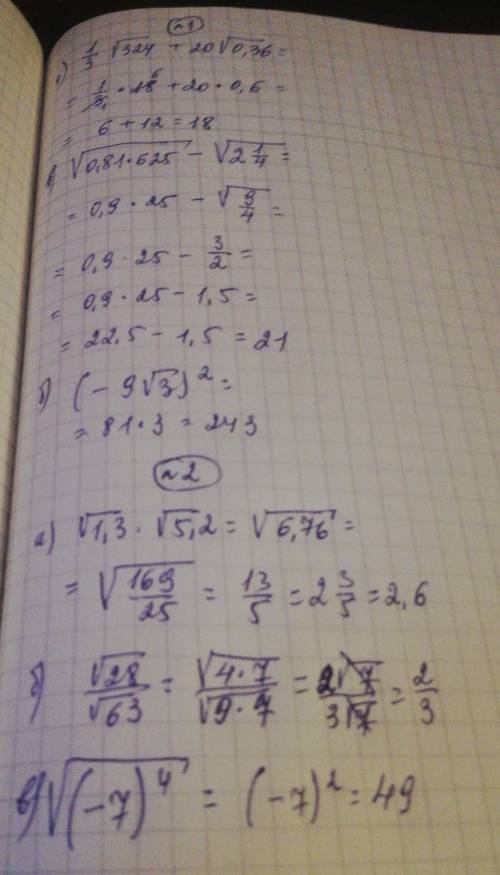 №1
а) 1/3 √324 + 20√0,36 =
= 1/3 · 18 + 20 · 0,6 =
= 6 + 12 = 18
в) √(0,81 · 625) − √(2 1/4) =
= 0,9 · 25 − √(9/4) =
= 0,9 · 25 − 3/2 =
= 0,9 · 25 − 1,5 =
= 22,5 − 1,5 = 21
б) (−9√3)² =
= 81 · 3 = 243
№2
а) √1,3 · √5,2 = √6,76 =
= √(169/25) = 13/5 = 2 3/5 = 2,6
б) √28/√63 = √(4·7)/√(9·7) = 2√7/3√7 = 2/3
в) √((−7)⁴) = (−7)² = 49